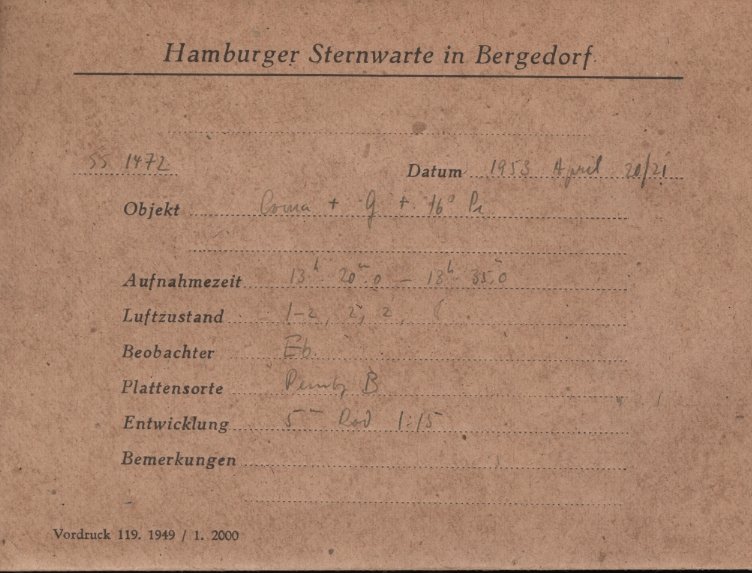 Hamburger Sternwarte in Bergedorf
SS 1472 Datum 1953 April 20/21
Objekt Coma + G + 16°
Aufnahmezeit 13h 20m,0 — 13h 35m,0
Luftzustand 1-2, 2, 2,
Beobachter Eb.
Plattensorte B
Entwicklung 5m Rod 1:15
Bemerkungen
Vordruck 119. 1949 / 1. 2000